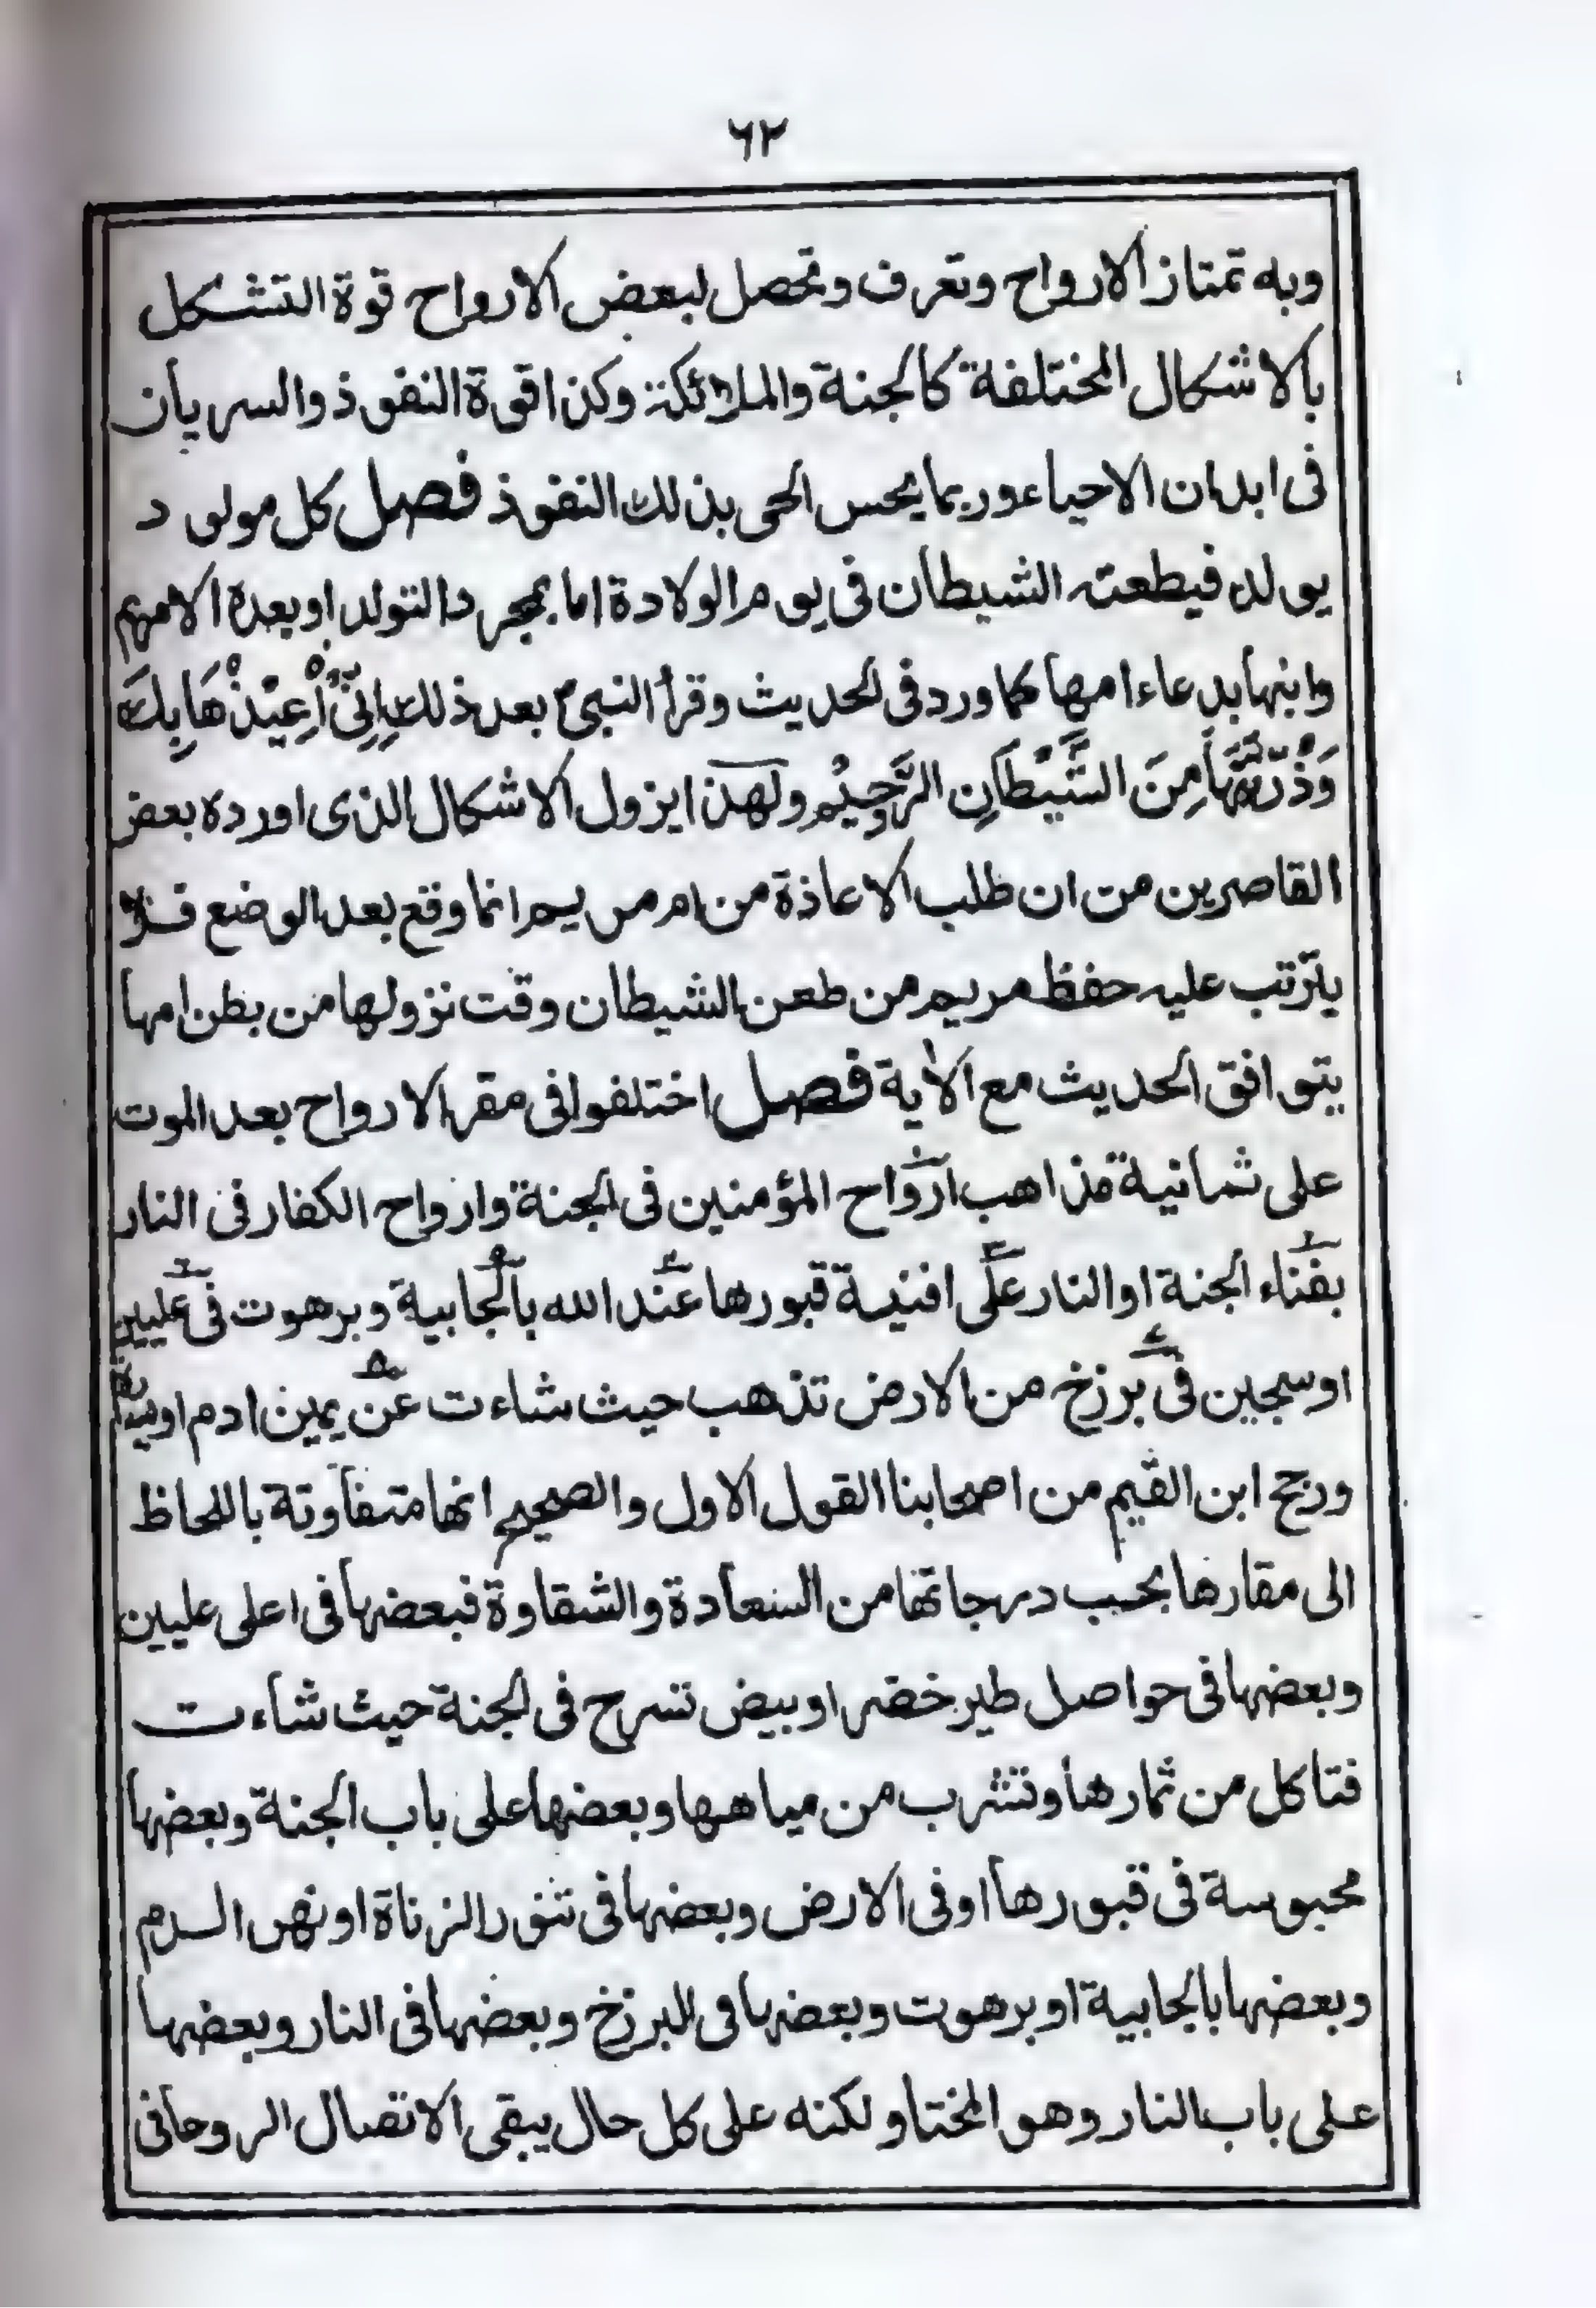 ٦٢
وبه تمتاز الارواح وتعرف وتحصل لبعض الارواح قوة التشكل
بالاشكال المختلفة كالجنة والملائكة وكذا قوة النفوذ والسريان
فى ابدان الاحياء وربما يحس الحى بذلك النفوذ فصل كل مولود
يولد فيطعنه الشيطان فى يوم الولادة اما بمجرد التولد او بعده الا مريم
وابنها بدعاء امها كما ورد فى الحديث وقرأ النبى ؐ بعد ذلك اِنِّىْ اُعِيْذُهَا بِكَ
وَذُرِّيَّتَهَا مِنَ الشَّيْطَانِ الرَّجِيْمِ ولهذا يزول الاشكال الذى اورده بعض
القاصرين من ان طلب الاعاذة من ام مريم انما وقع بعد الوضع فلا
يترتب عليه حفظ مريم من طعن الشيطان وقت نزولها من بطن امها
يتوافق الحديث مع الأية فصل اختلفوا فى مقر الارواح بعد الموت
على ثمانية مذاهب ارواح المؤمنين فى الجنة وارواح الكفار فى النار
بفناء الجنة او النار على افنية قبورها عند الله بالجابية وبرهوت فى عليين
او سجين فى برزخ من الارض تذهب حيث شاءت عن يمين ادم او
ورجح ابن القيم من اصحابنا القول الاول والصحيح انها متفاوتة باللحاظ
الى مقارها بحسب درجاتها من السعادة والشقاوة فبعضها فى اعلى عليين
وبعضها فى حواصل طير خضر او بيض تسرح فى الجنة حيث شاءت
فتاكل من ثمارها وتشرب من مياهها وبعضها على باب الجنة وبعضها
محبوسة فى قبورها او فى الارض وبعضها فى تنور الزناة او نهر الدم
وبعضها بالجابية او برهوت وبعضها فى البرزخ وبعضها فى النار وبعضها
على باب النار وهو المختار ولكنه على كل حال يبقى الاتصال الروحانى